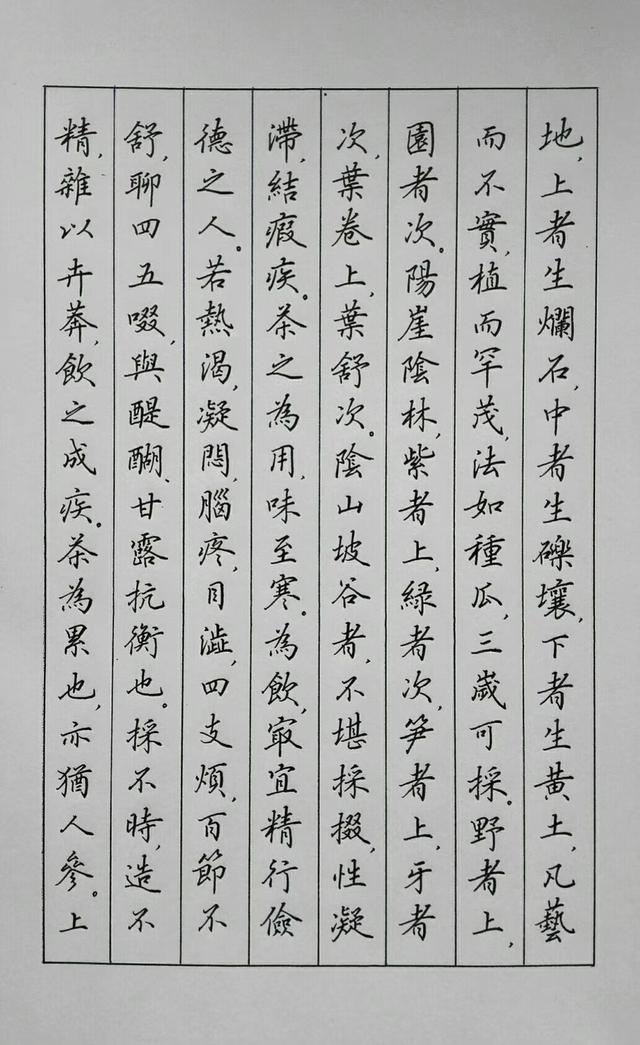 地，上者生爛石，中者生礫壤，下者生黄土，凡藝
而不實，植而罕茂，法如種瓜，三歲可採。野者上，
園者次。陽崖陰林，紫者上，綠者次，笋者上，牙者
次，葉卷上，葉舒次。陰山坡谷者，不堪採掇，性凝
滯，結瘕疾。茶之為用，味至寒。為飲，冣宜精行儉
德之人。若熱渴，凝悶，腦疼，目澁，四支煩，百節不
舒，聊四五啜，與醍醐、甘露抗衡也。採不時，造不
精，雜以卉莽，飲之成疾。茶為累也，亦猶人參。上